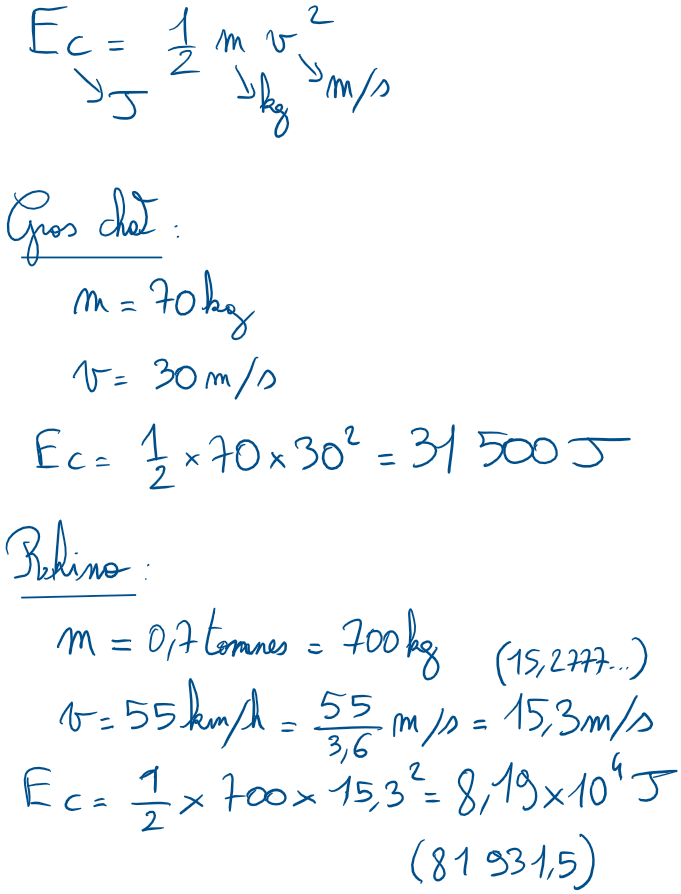 Ec = 1/2 m v²
↘J ↘kg ↘m/s
Gros chat :
m = 70 kg
v = 30 m/s
Ec = 1/2 × 70 × 30² = 31 500 J
Rhino :
m = 0,7 tonnes = 700 kg
(15,2777...)
v = 55 km/h = 55/3,6 m/s = 15,3 m/s
Ec = 1/2 × 700 × 15,3² = 8,19 × 10⁴ J
(81 931,5)